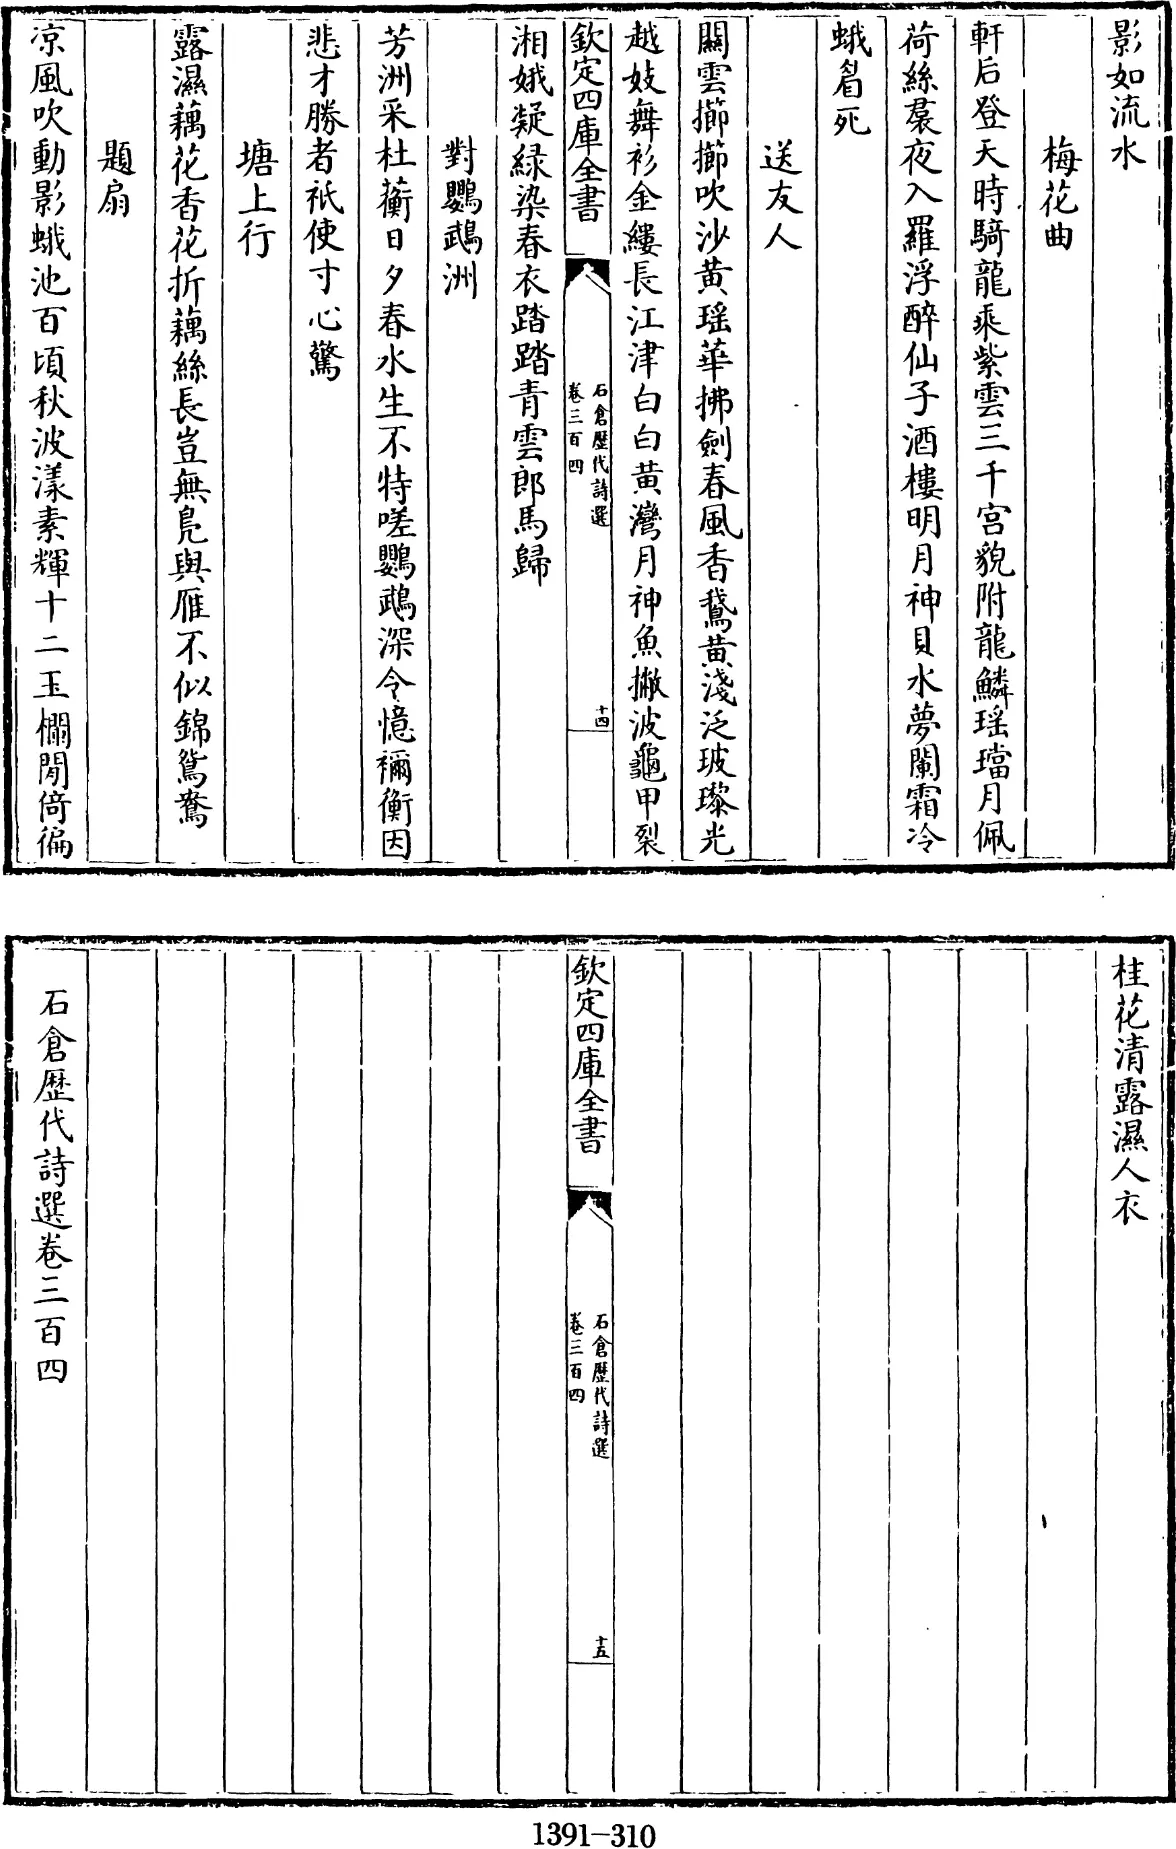 影如流水
梅花曲
軒后登天時騎龍乘紫雲三千宫貌附龍鱗瑶璫月佩
荷絲裠夜入羅浮醉仙子酒樓明月神貝水夢闌霜冷
蛾眉死
送友人
關雲擳擳吹沙黄瑶華拂劍春風香鵞黄淺泛玻瓈光
越妓舞衫金縷長江津白白黄灣月神魚撇波龜甲裂
欽定四庫全書
石倉歴代詩選
卷三百四
十四
湘娥凝緑染春衣踏踏青雲郎馬歸
對鸚鵡洲
芳洲采杜蘅日夕春水生不特嗟鸚鵡深令憶禰衡因
悲才勝者祇使寸心驚
塘上行
露濕藕花香花折藕絲長豈無鳧與雁不似錦鴛鴦
題扇
凉風吹動影蛾池百頃秋波漾素輝十二玉欄閒倚徧
桂花清露濕人衣
欽定四庫全書
石倉歴代詩選
卷三百四
十五
石倉歴代詩選卷三百四
1391-310